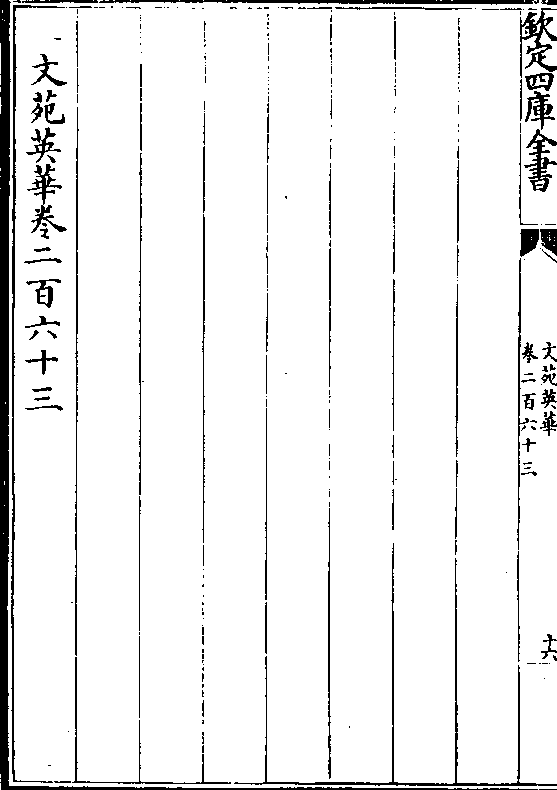 欽定四庫全書
文苑英華
卷二百六十三
十六
文苑英華卷二百六十三